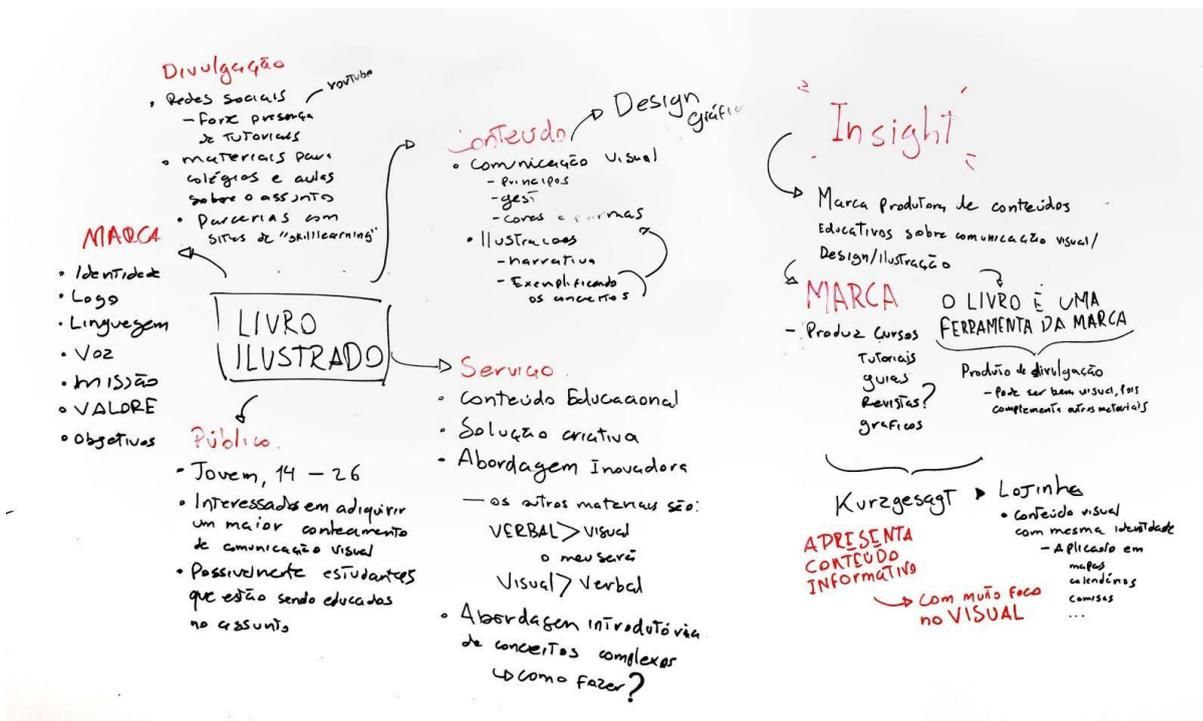 Divulgação
• Redes sociais
YouTube
- Forte presença
de Tutoriais
• materiais para
colégios e aulas
sobre o assunto
• Parcerias com
sites de "skilllearning"
MARCA
• Identidade
• Logo
• Linguagem
• Voz
• missão
• VALORE
• Objetivos
LIVRO
ILUSTRADO
Público
• Jovem, 14 - 26
• Interessados em
um maior
de comunicação visual
• Possivelmente estudantes
que estão sendo educados
no assunto
Conteúdo
Design
gráfico
• Comunicação visual
- Principos
- gest
- cores e formas
• Ilustracoes
- narrativa
- Exemplificando
os conceitos
Serviço
• Conteúdo Educacional
• Solução criativa
• Abordagem Inovadora
- os outros materiais são:
VERBAL > Visual
o meu será
Visual > Verbal
• Abordagem introdutória
de conceitos complexos
↳ como fazer?
Insight
Marca Produtora de conteúdos
Educativos sobre comunicação visual/
Design/Ilustração
MARCA
- Produz Cursos
Tutoriais
guias
Revistas?
graficos
O LIVRO É UMA
FERRAMENTA DA MARCA
Produto de divulgação
- Pode ser bem visual, pois
complementa outros materiais
Kurzgesagt
APRESENTA
CONTEÚDO
INFORMATIVO
Com muito Foco
no VISUAL
Lojinha
• Conteúdo visual
com mesma identidade
- Aplicado em
mapas
calendários
camisas
...